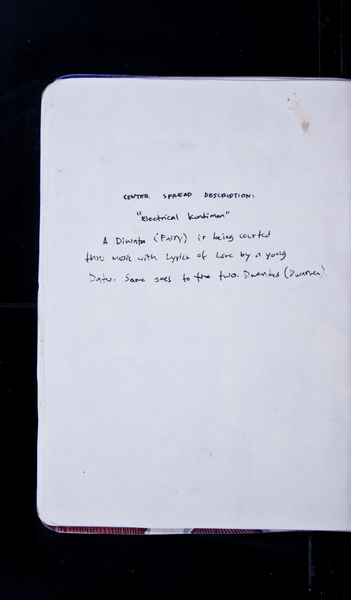 CENTER SPREAD DESCRIPTION:
"Electrical Kundiman"
A Diwata (Fairy) is being courted
thru music with Lyrics of Love by a young
Datu. Same goes to the two. Dwendes (Dwarves)